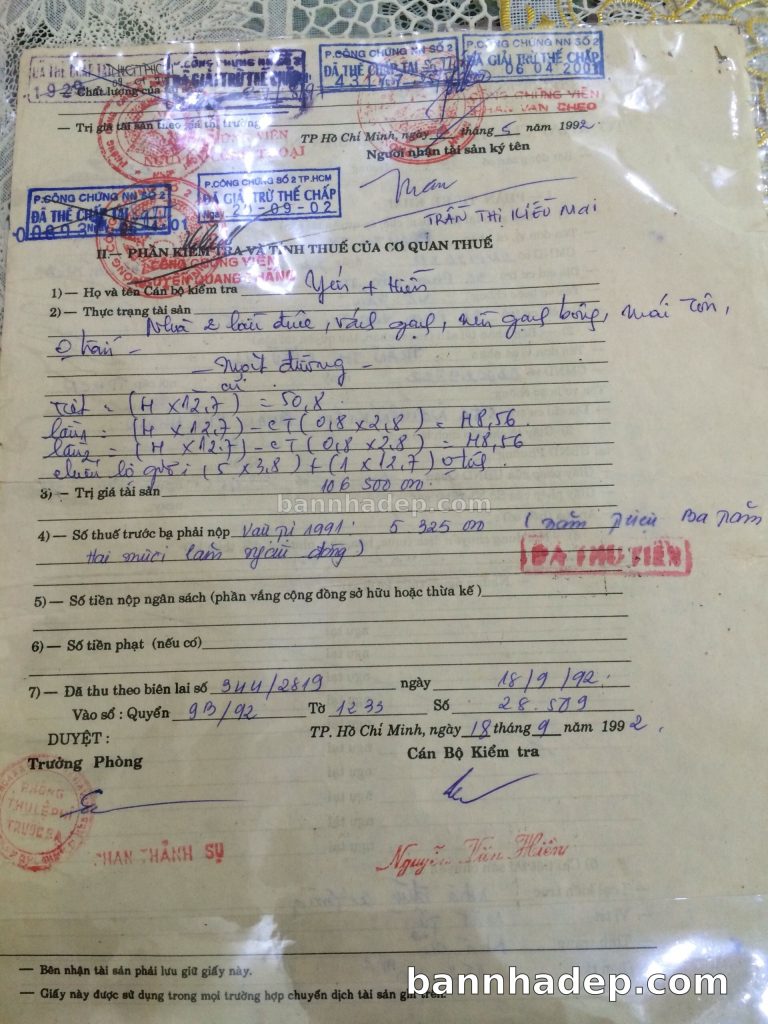 P.CÔNG CHỨNG NN SỐ 2
P.CÔNG CHỨNG NN SỐ 2
ĐÃ THẾ CHẤP TẠI
ĐÃ GIẢI TRỪ THẾ CHẤP
ĐÃ GIẢI TRỪ THẾ CHẤP
06 04 2001
1929
Chất lượng của
CÔNG CHỨNG VIÊN
— Trị giá tài sản theo giá thị trường
TP Hồ Chí Minh, ngày tháng 5 năm 1992
Người nhận tài sản ký tên
P.CÔNG CHỨNG NN SỐ 2
P.CÔNG CHỨNG SỐ 2 TP.HCM
ĐÃ THẾ CHẤP TẠI
ĐÃ GIẢI TRỪ THẾ CHẤP
Ngày 21-09-02
TRẦN THỊ KIỀU MAI
II.— PHẦN KIỂM TRA VÀ TÍNH THUẾ CỦA CƠ QUAN THUẾ
CÔNG CHỨNG VIÊN
NGUYỄN QUANG THẮNG
1) — Họ và tên Cán bộ kiểm tra Yến + Hiền
2) — Thực trạng tài sản
Nhà 2 lầu đúc, vách gạch, nền gạch bông, mái tôn,
trần —
— Mặt đường —
trệt = (4 x 12,7) = 50,8.
lầu1 = (4 x 12,7) - CT (0,8 x 2,8) = 48,56
lầu2 = (4 x 12,7) - CT (0,8 x 2,8) = 48,56
(5 x 3,8) + (1 x 12,7)
3) — Trị giá tài sản 106 500 000.
bannhadep.com
4) — Số thuế trước bạ phải nộp 1991. 5 325 000 (năm triệu Ba trăm
Hai mươi lăm ngàn đồng)
ĐÃ THU TIỀN
5) — Số tiền nộp ngân sách (phần vắng cộng đồng sở hữu hoặc thừa kế)
6) — Số tiền phạt (nếu có)
7) — Đã thu theo biên lai số 344/2819 ngày 18/9/92.
Vào sổ : Quyển 9B/92 Tờ 1233 Số 28.509
DUYỆT :
TP. Hồ Chí Minh, ngày 18 tháng 9 năm 1992.
Trưởng Phòng
Cán Bộ Kiểm tra
PHÒNG
THU LỆ PHÍ
TRƯỚC BẠ
PHAN THÀNH SỰ
Nguyễn Văn Hiền
— Bên nhận tài sản phải lưu giữ giấy này.
— Giấy này được sử dụng trong mọi trường hợp chuyển dịch tài sản ghi trên.
bannhadep.com